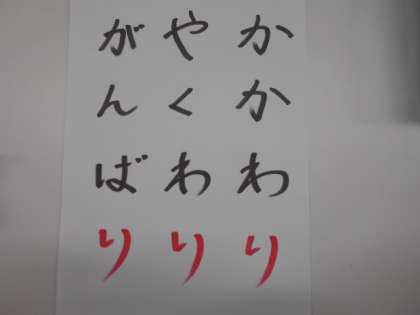 かかわり
やくわり
がんばり